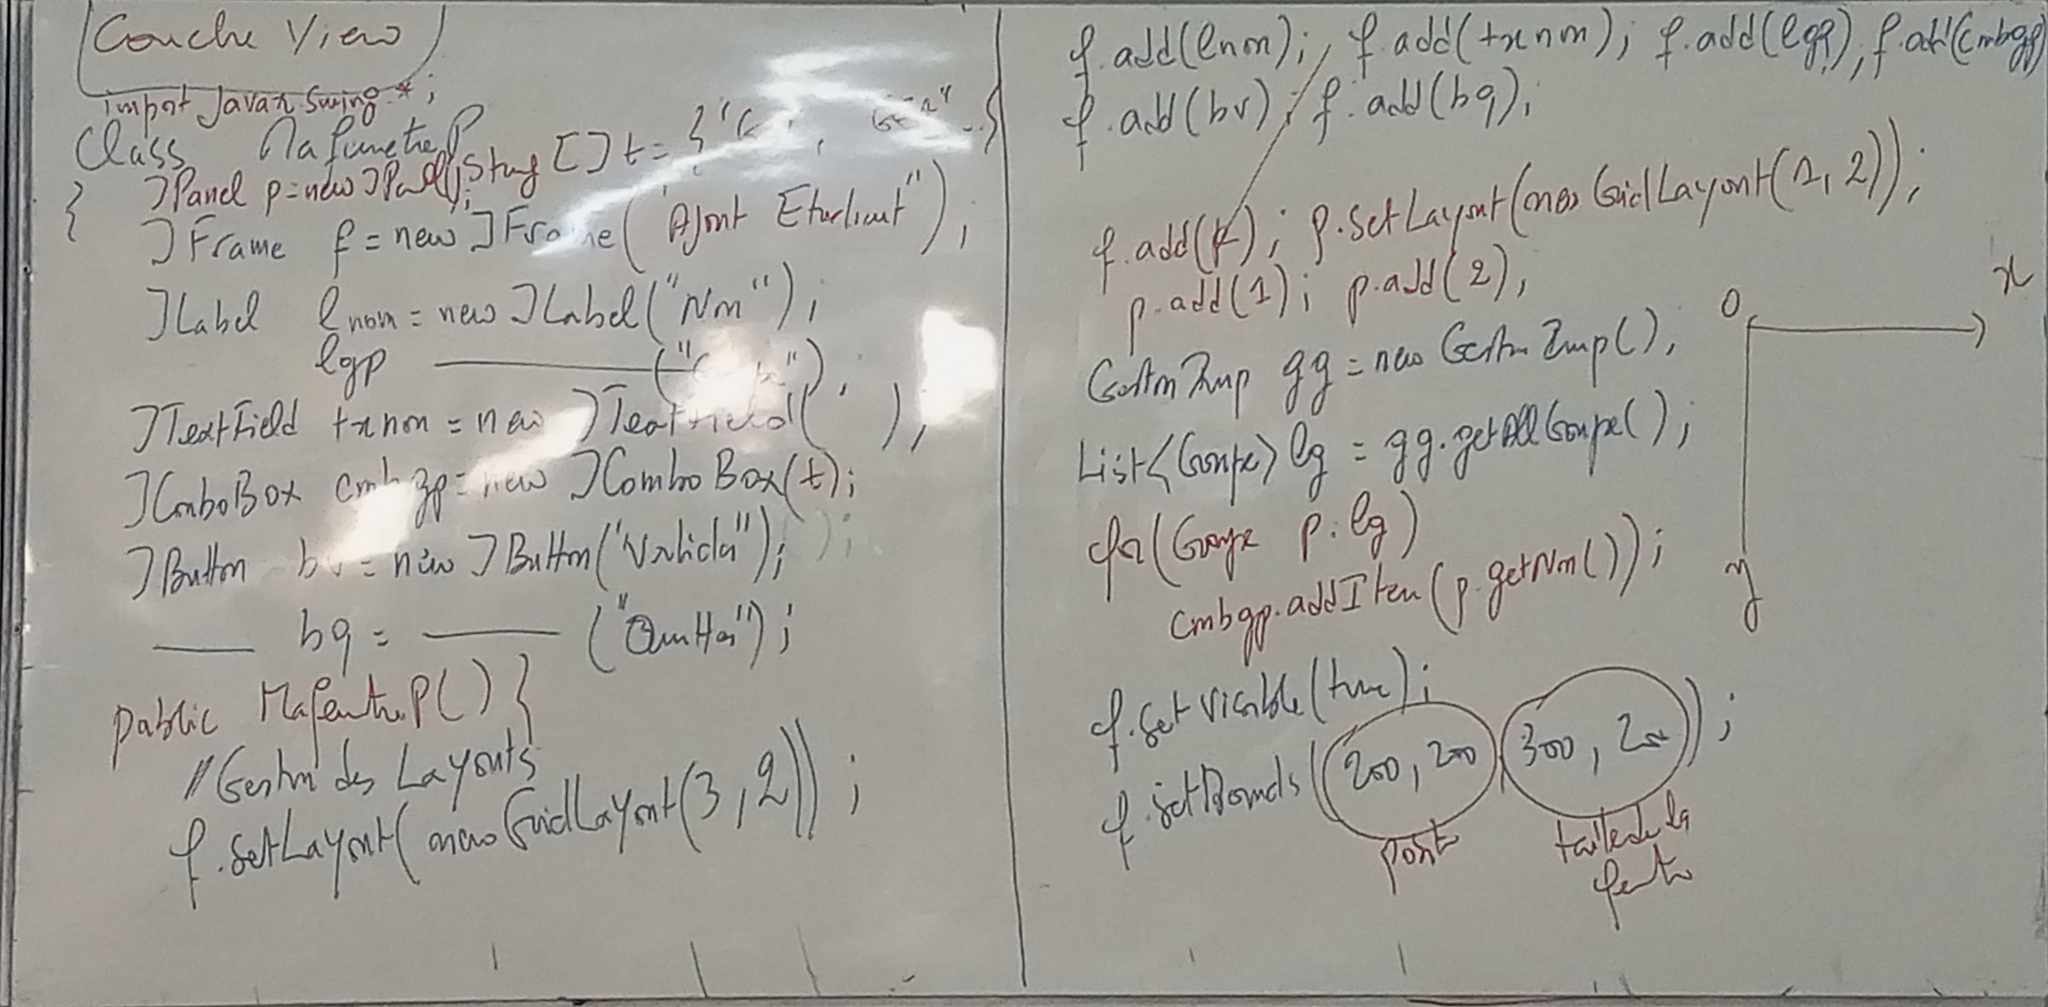 Couche View
import Javax.Swing.*;
Class MafenetreP
{ JPanel p=new JPanel(); String [] t = {"
JFrame f = new JFrame("Ajout Etudiant");
JLabel lnom = new JLabel("Nom");
lgp ——— ("
JTextField txnom = new JTextField(" );
JComboBox cmbgp = new JComboBox(t);
JButton bv = new JButton("Valider");
—— bq = ——— ("Quitter");
public MafenetreP() {
// Gestion des Layouts
f.setLayout(new GridLayout(3,2));
f.add(lnom); f.add(txnom); f.add(lgp); f.add(cmbgp)
f.add(bv); f.add(bq);
f.add(p); p.setLayout(new GridLayout(1,2));
p.add(1); p.add(2);
GestionImp gg = new GestionImp();
List<Groupe> lg = gg.getAllGroupe();
for(Groupe p: lg)
cmbgp.addItem(p.getNom());
f.setVisible(true);
f.setBounds((200, 200), (300, 200));
point
taille de la
fenetre
0
x
y